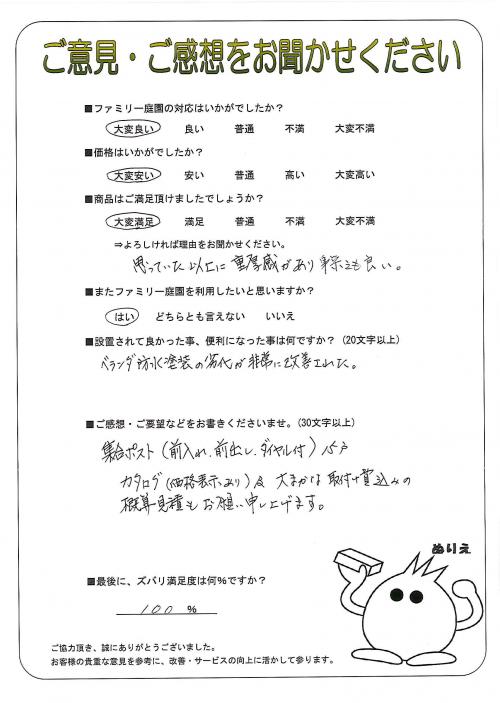 ご意見・ご感想をお聞かせください
■ファミリー庭園の対応はいかがでしたか？
大変良い 良い 普通 不満 大変不満
■価格はいかがでしたか？
大変安い 安い 普通 高い 大変高い
■商品はご満足頂けましたでしょうか？
大変満足 満足 普通 不満 大変不満
⇒よろしければ理由をお聞かせください。
思っていた以上に重厚感があり見栄えも良い。
■またファミリー庭園を利用したいと思いますか？
はい どちらとも言えない いいえ
■設置されて良かった事、便利になった事は何ですか？（20文字以上）
ベランダ防水塗装の劣化が非常に改善された。
■ご感想・ご要望などをお書きくださいませ。（30文字以上）
集合ポスト（前入れ、前出し、ダイヤル付）15戸
カタログ（価格表示あり）及 大まかな取付け費込みの
概算見積もお願い申し上げます。
ぬりえ
■最後に、ズバリ満足度は何%ですか？
100 %
ご協力頂き、誠にありがとうございました。
お客様の貴重な意見を参考に、改善・サービスの向上に活かして参ります。